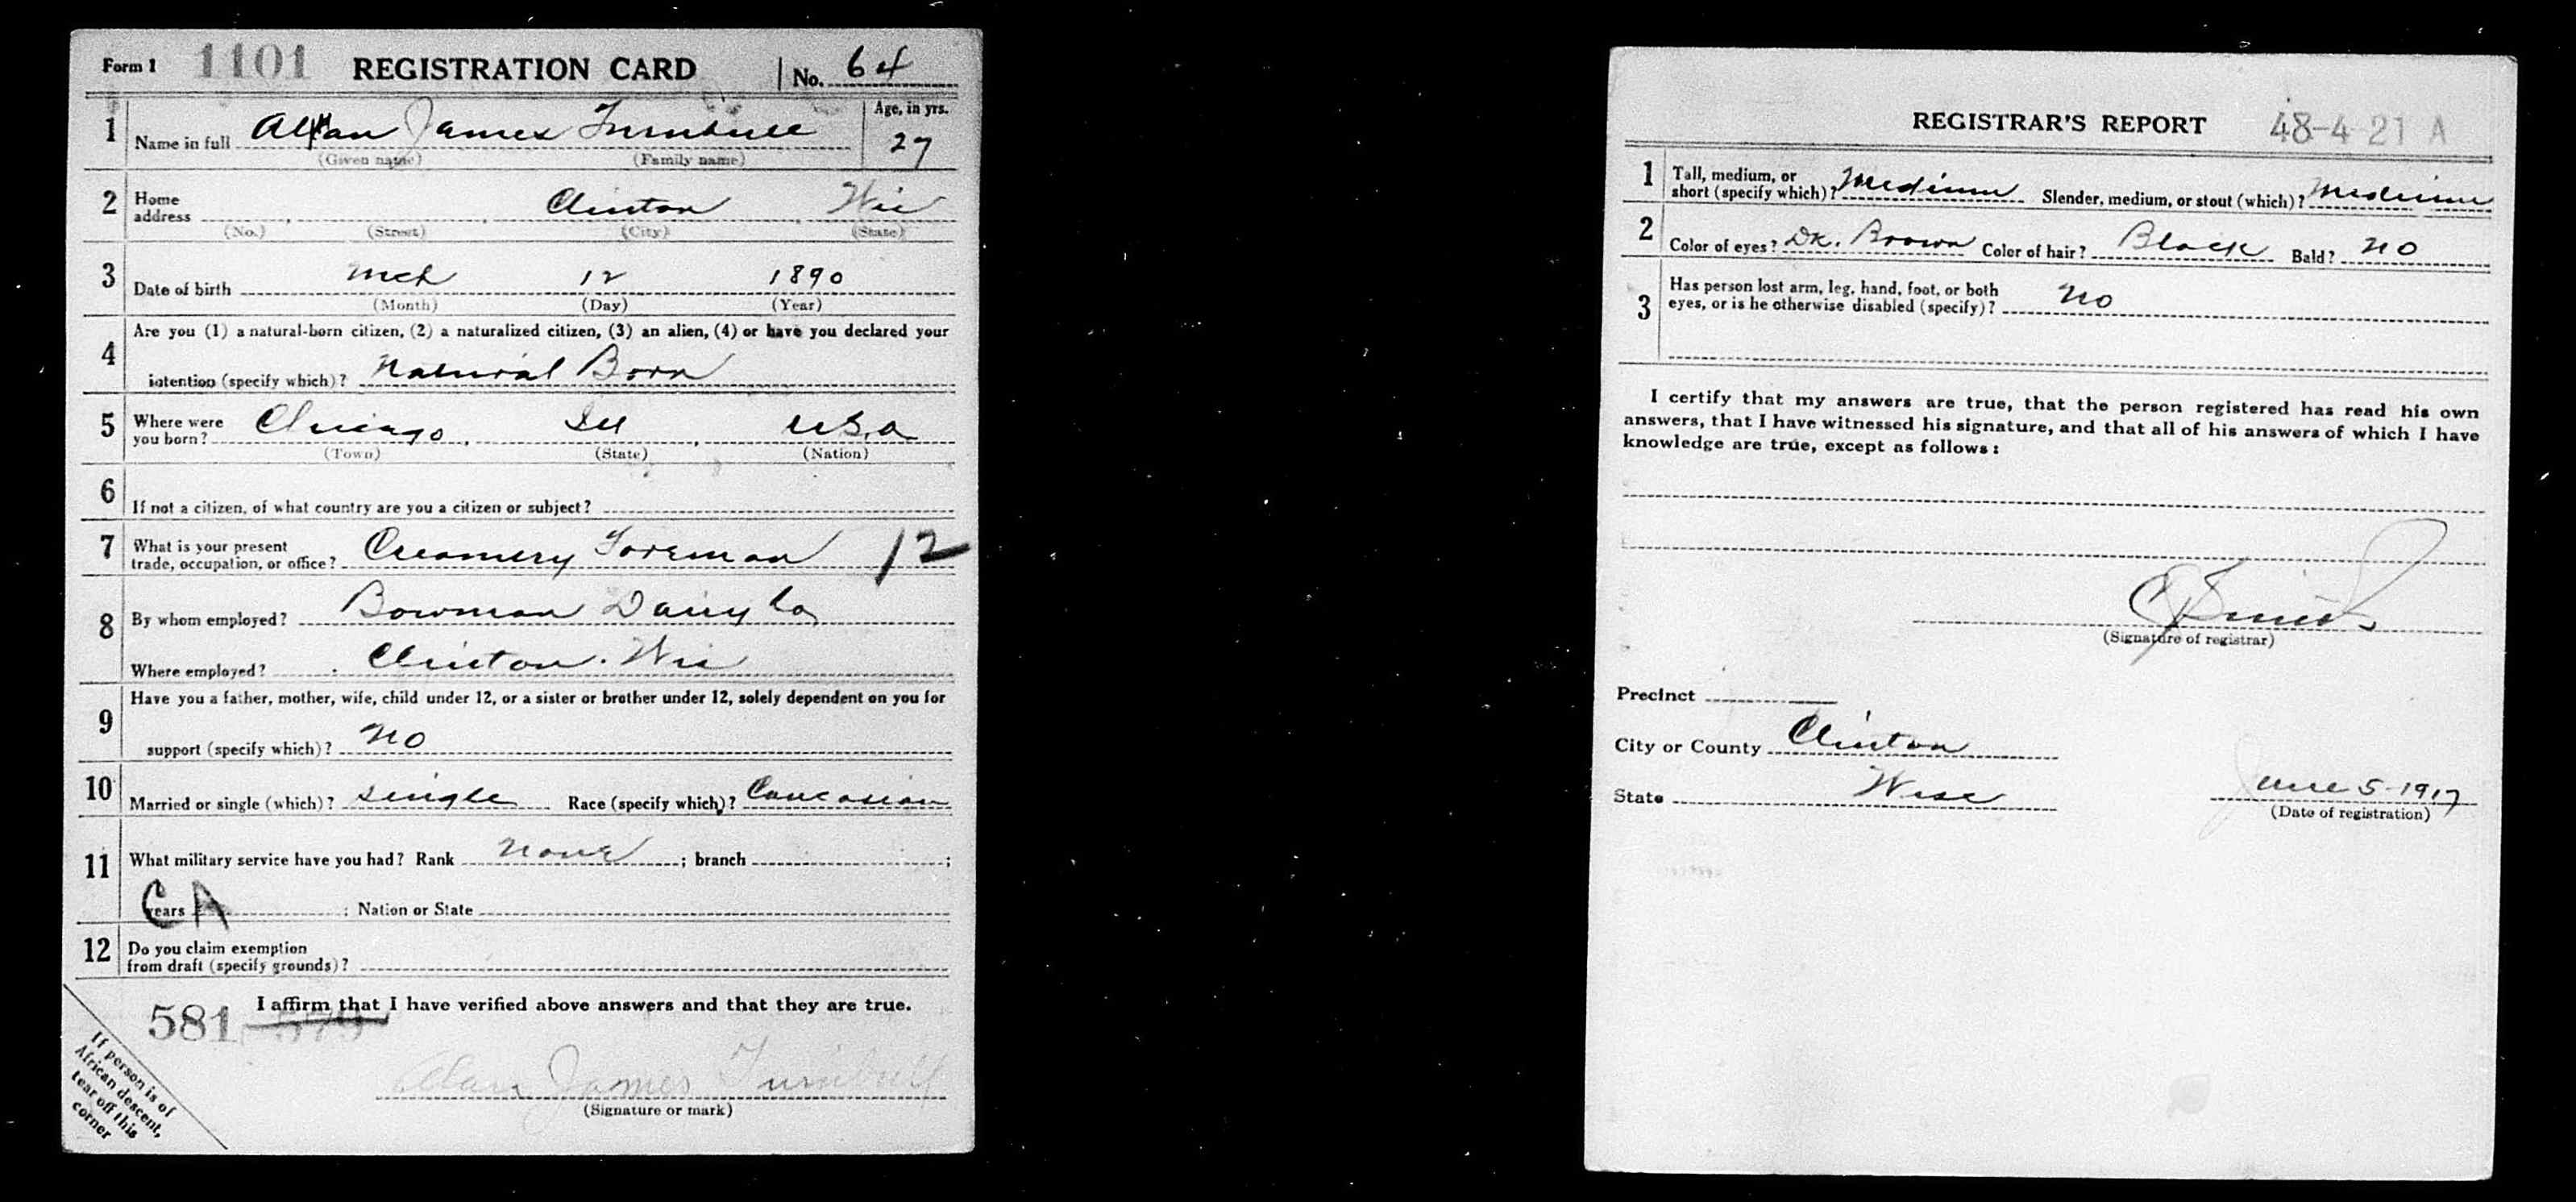 Form 1 1101 REGISTRATION CARD No. 64
1 Name in full Allan James Turnbull Age, in yrs. 27
(Given name) (Family name)
2 Home address Clinton Wis
(No.) (Street) (City) (State)
3 Date of birth Mch 12 1890
(Month) (Day) (Year)
4 Are you (1) a natural-born citizen, (2) a naturalized citizen, (3) an alien, (4) or have you declared your
intention (specify which)? Natural Born
5 Where were you born? Chicago, Ill, U.S.a
(Town) (State) (Nation)
6 If not a citizen, of what country are you a citizen or subject?
7 What is your present trade, occupation, or office? Creamery Foreman 12
8 By whom employed? Bowman Dairy Co,
Where employed? Clinton. Wis
9 Have you a father, mother, wife, child under 12, or a sister or brother under 12, solely dependent on you for
support (specify which)? No
10 Married or single (which)? single Race (specify which)? Caucasian
11 What military service have you had? Rank None ; branch ;
years CA ; Nation or State
12 Do you claim exemption
from draft (specify grounds)?
I affirm that I have verified above answers and that they are true.
581 579
Alan James Turnbull
(Signature or mark)
If person is of
African descent,
tear off this
corner
REGISTRAR'S REPORT 48-4-21 A
1 Tall, medium, or short (specify which)? Medium Slender, medium, or stout (which)? Medium
2 Color of eyes? Dk. Brown Color of hair? Black Bald? No
3 Has person lost arm, leg, hand, foot, or both
eyes, or is he otherwise disabled (specify)? No
I certify that my answers are true, that the person registered has read his own
answers, that I have witnessed his signature, and that all of his answers of which I have
knowledge are true, except as follows:
(Signature of registrar)
Precinct
City or County Clinton
State Wisc June 5-1917
(Date of registration)